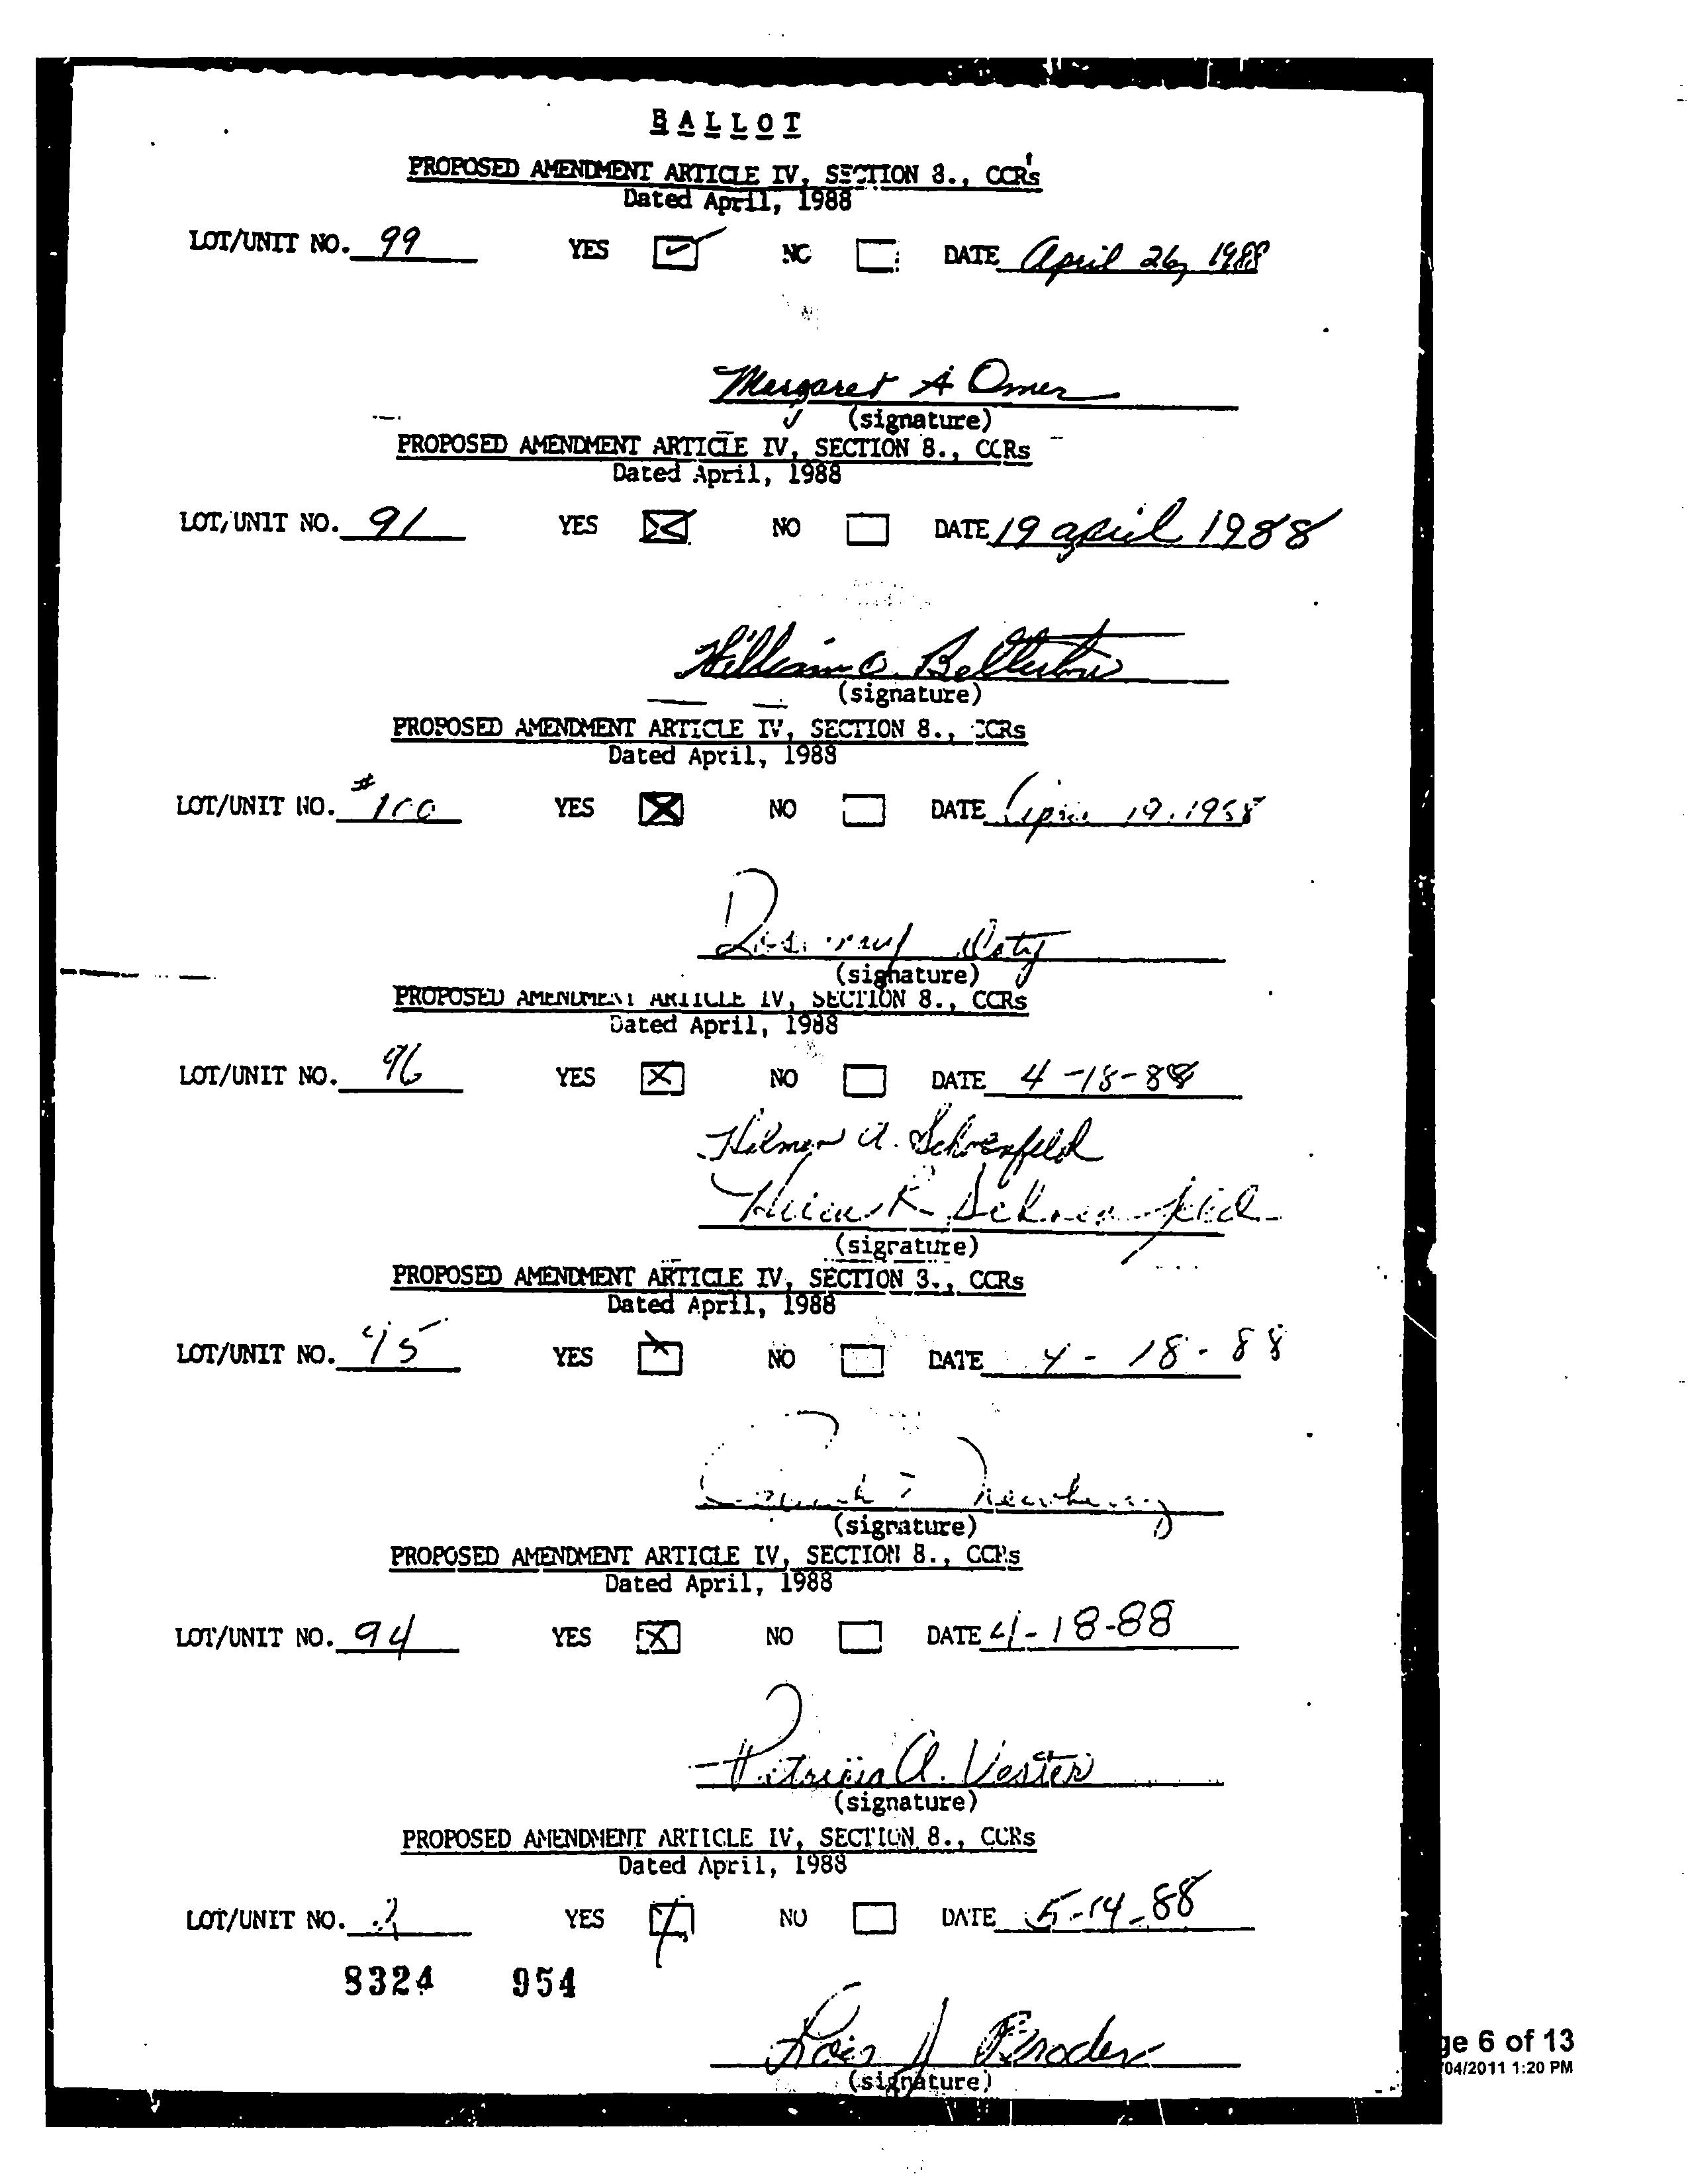 BALLOT
PROPOSED AMENDMENT ARTICLE IV, SECTION 8., CCR's
Dated April, 1988
LOT/UNIT NO. 99 YES NO DATE April 26, 1988
Margaret A Omer
(signature)
PROPOSED AMENDMENT ARTICLE IV, SECTION 8., CCRs
Dated April, 1988
LOT/UNIT NO. 91 YES NO DATE 19 april 1988
William O.
(signature)
PROPOSED AMENDMENT ARTICLE IV, SECTION 8., CCRs
Dated April, 1988
LOT/UNIT NO. #100 YES NO DATE April 19, 1988
Doty
(signature)
PROPOSED AMENDMENT ARTICLE IV, SECTION 8., CCRs
Dated April, 1988
LOT/UNIT NO. 96 YES NO DATE 4-18-88
Hilmer A. Schoenfeld
K Schoenfeld
(signature)
PROPOSED AMENDMENT ARTICLE IV, SECTION 8., CCRs
Dated April, 1988
LOT/UNIT NO. 95 YES NO DATE 4-18-88
Newberry
(signature)
PROPOSED AMENDMENT ARTICLE IV, SECTION 8., CCRs
Dated April, 1988
LOT/UNIT NO. 94 YES NO DATE 4-18-88
Patricia A. Vester
(signature)
PROPOSED AMENDMENT ARTICLE IV, SECTION 8., CCRs
Dated April, 1988
LOT/UNIT NO. 2 YES NO DATE 5-14-88
8324 954
Lois J Broder
(signature)
ge 6 of 13
/04/2011 1:20 PM